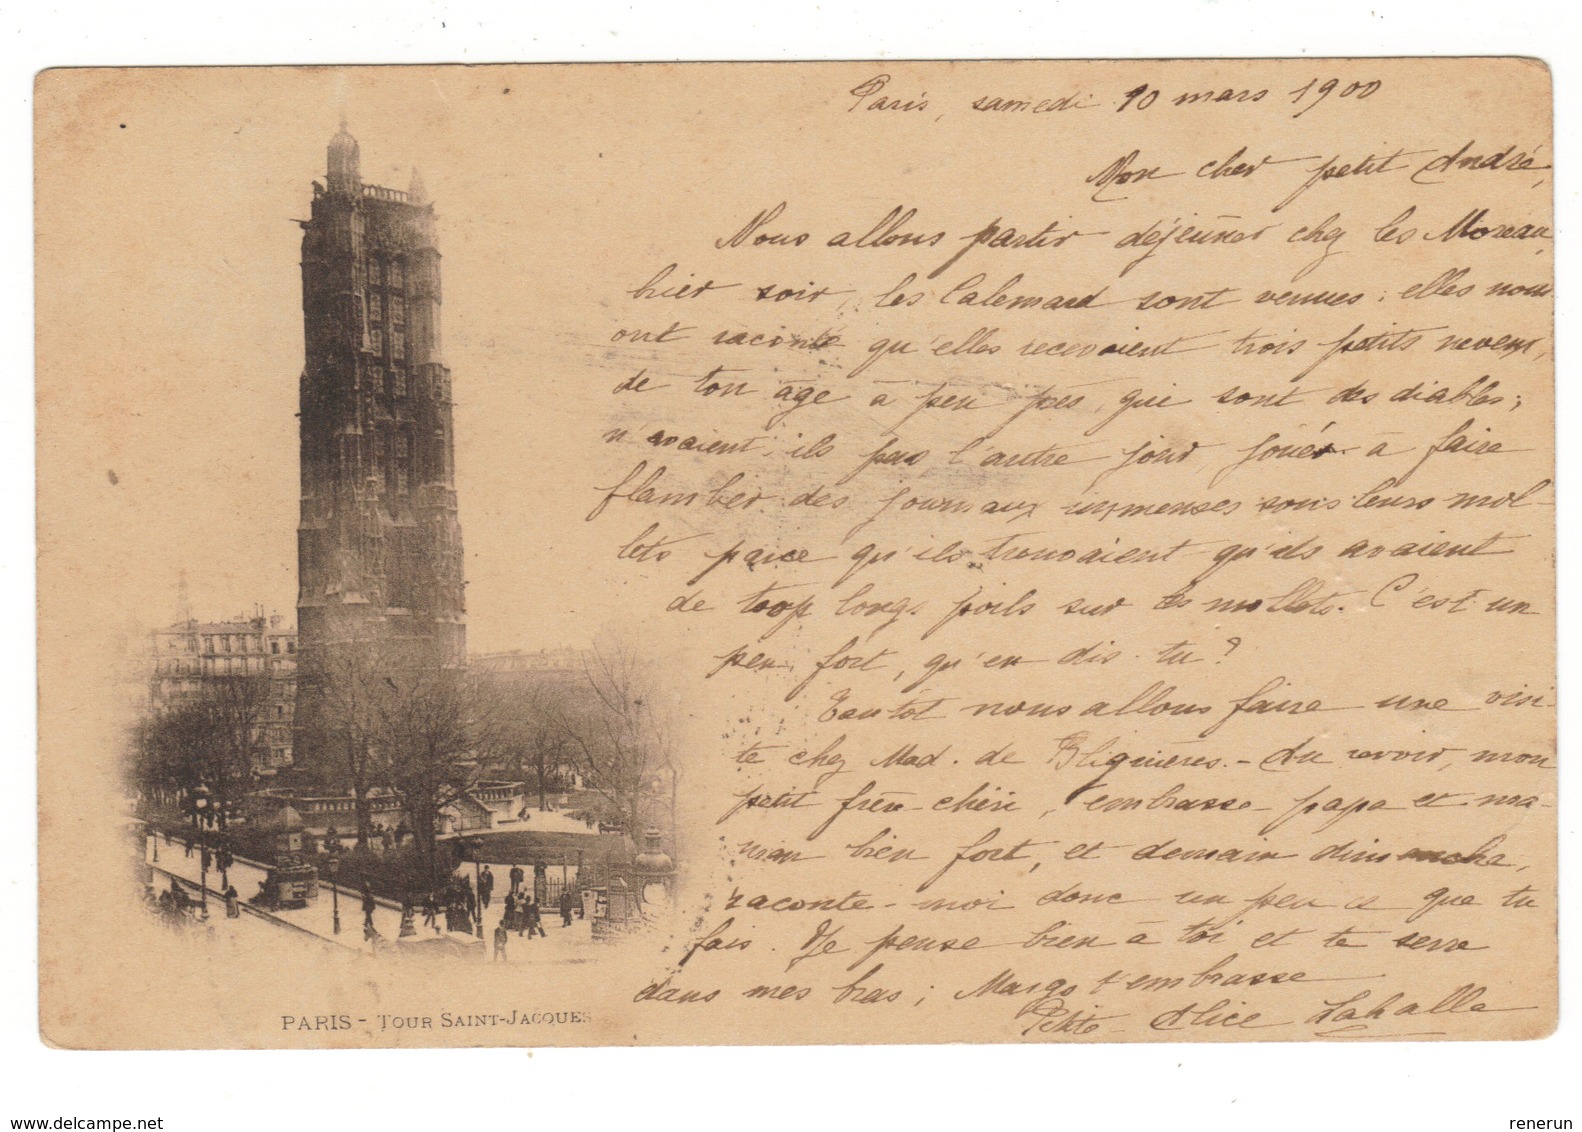 Paris, samedi 10 mars 1900
Mon cher petit André,
Nous allons partir déjeûner chez les Moreau,
hier soir, les Calemard sont venues ; elles nous
ont raconté qu'elles recevaient trois petits neveux,
de ton âge à peu près, qui sont des diables ;
n'avaient-ils pas l'autre jour, jouer à faire
flamber des journaux immenses sous leurs mol-
lets parce qu'ils trouvaient qu'ils avaient
de trop longs poils sur les mollets. C'est un
peu fort, qu'en dis-tu ?
Tantôt nous allons faire une visi-
te chez Mad. de Bliguières. - Au revoir, mon
petit frère chéri, embrasse papa et ma-
man bien fort, et demain dimanche,
raconte-moi donc un peu ce que tu
fais. Je pense bien à toi et te serre
dans mes bras ; Margo t'embrasse
Petite Alice Lahalle
PARIS - TOUR SAINT-JACQUES
www.delcampe.net
renerun